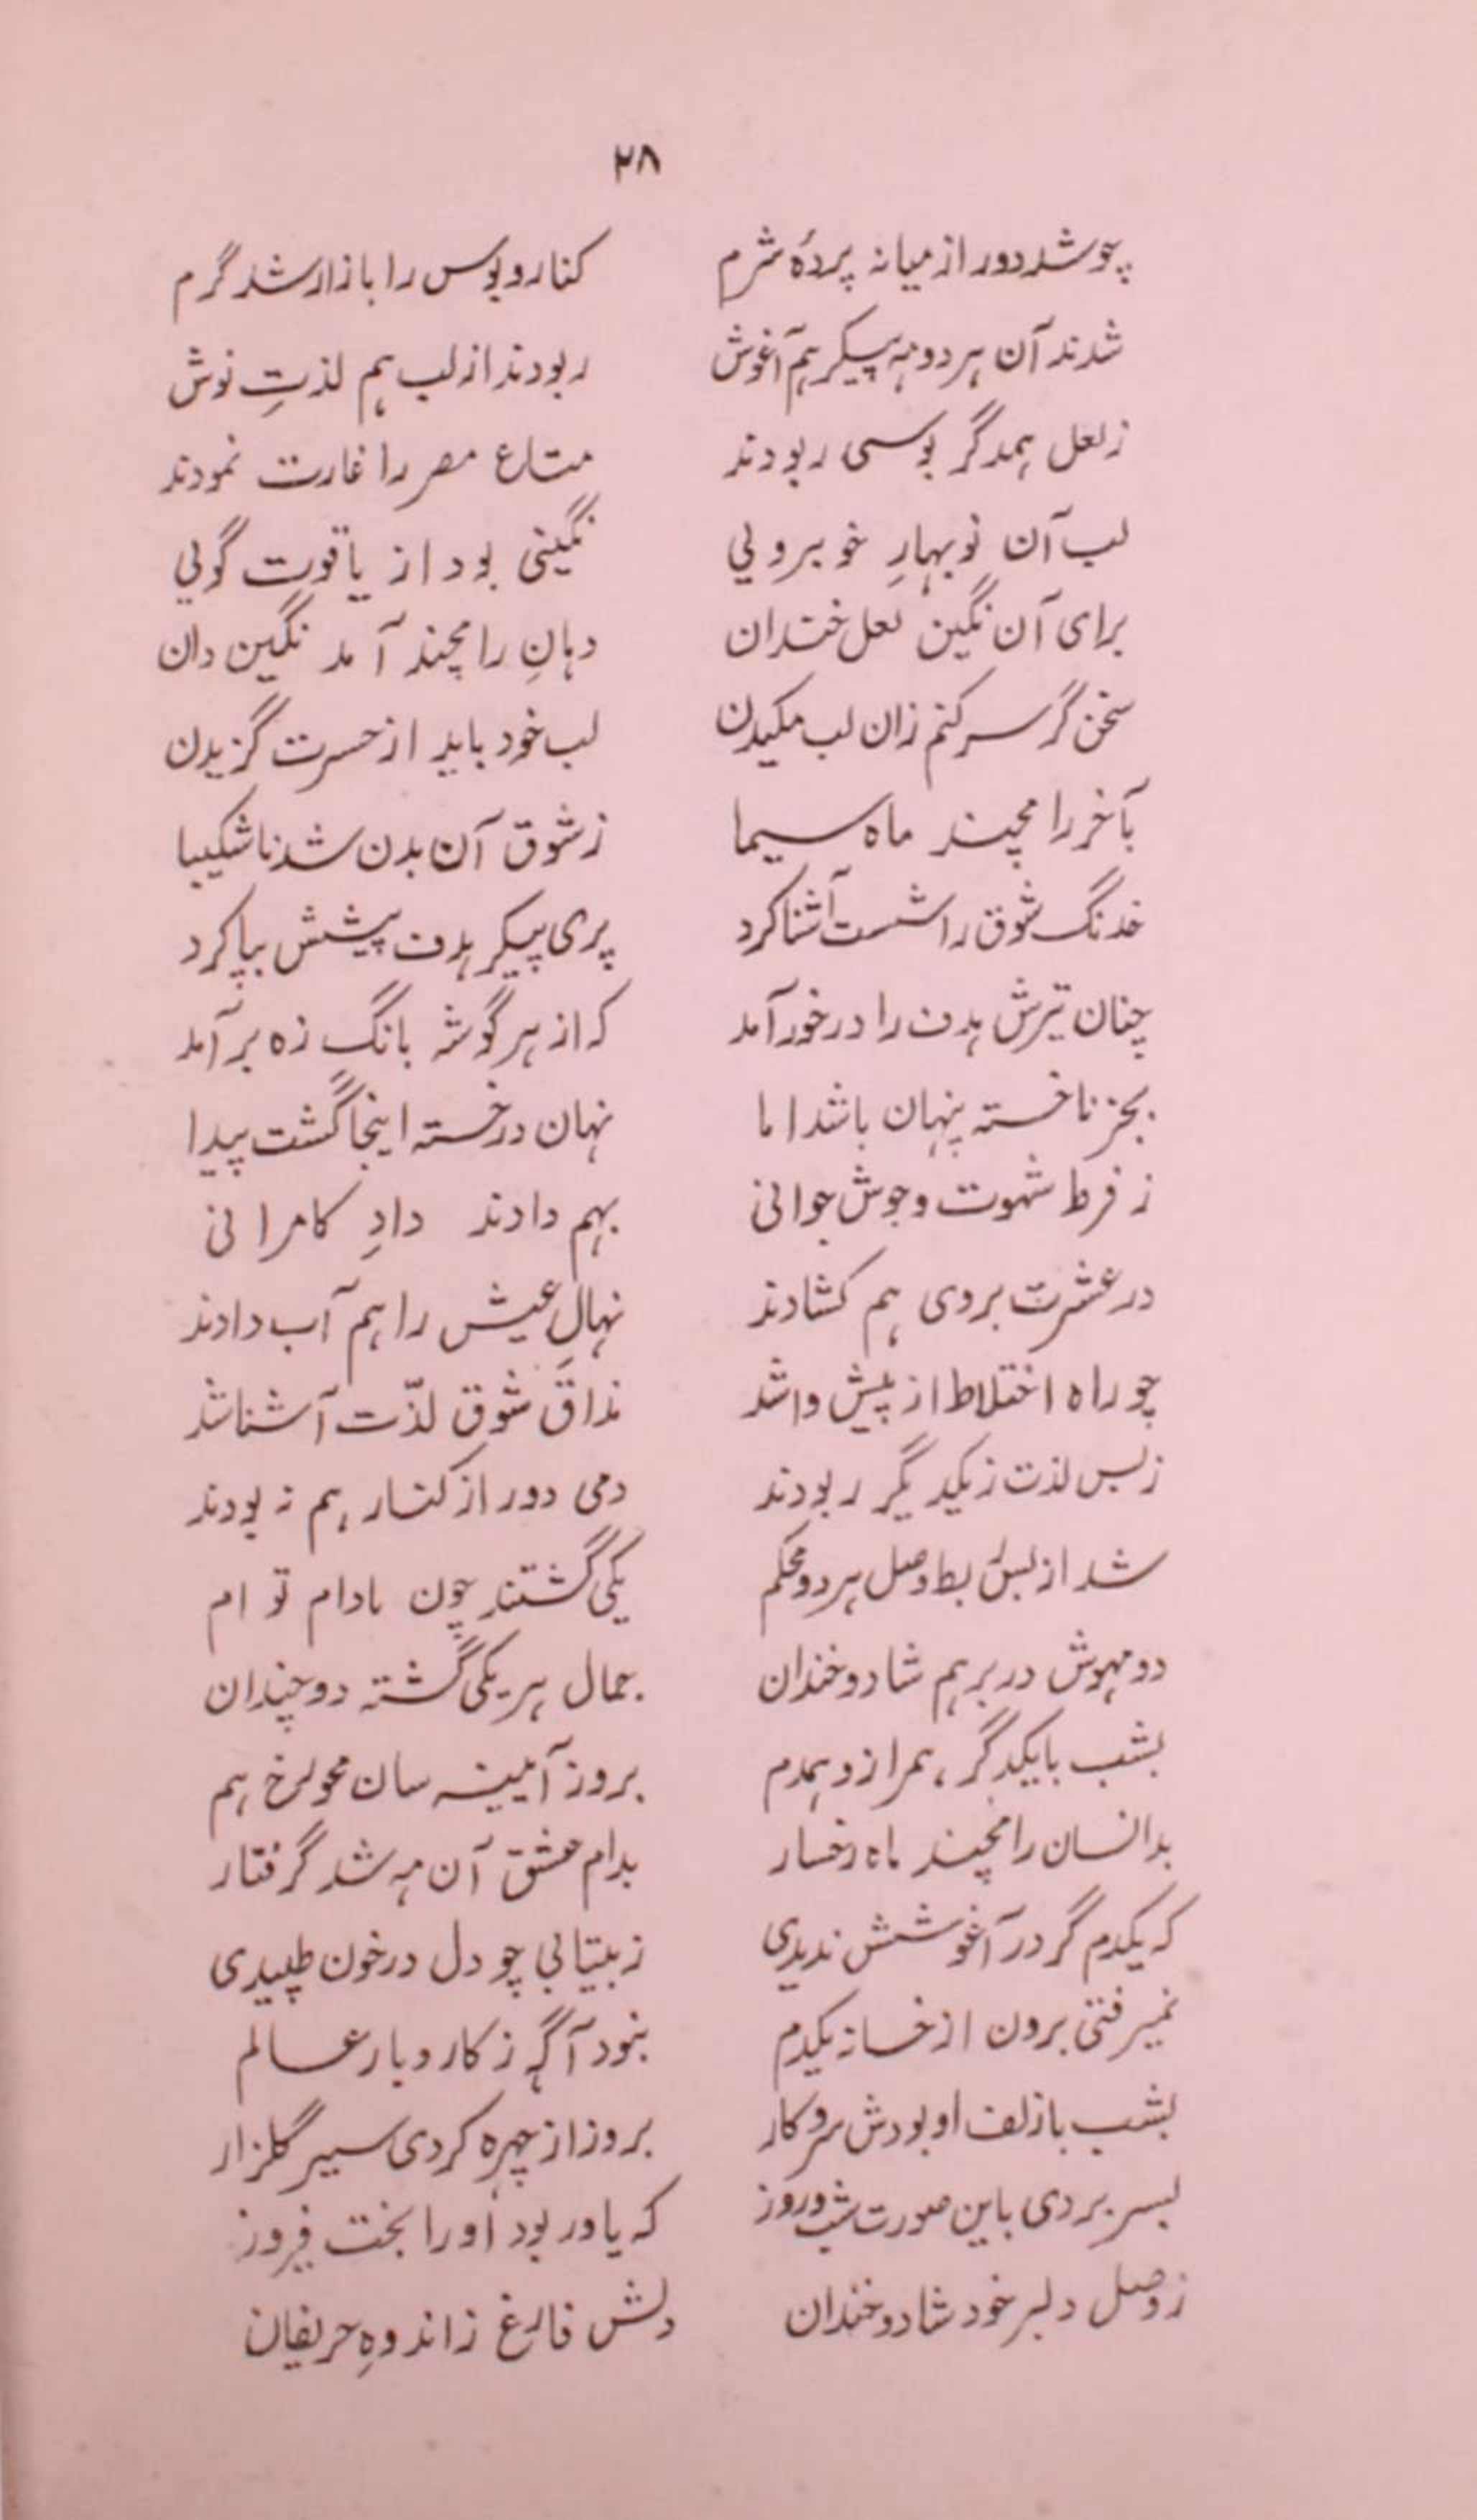 ۲۸
چو شد دور از میانه پردۂ شرم کنار و بوس را بازار شد گرم
شدند آن هر دو مه پیکر هم آغوش ربودند از لب هم لذتِ نوش
ز لعل همدگر بوسی ربودند متاع مصر را غارت نمودند
لب آن نوبهارِ خوبرویٔی نگینی بود از یاقوت گویٔی
برای آن نگین لعل خندان دهانِ رامچند آمد نگین دان
سخن گر سر کنم زان لب مکیدن لب خود باید از حسرت گزیدن
بآخر رامچند ماه سیما ز شوق آن بدن شد ناشکیبا
خدنگ شوق را شست آشنا کرد پری پیکر هدف پیشش بپا کرد
چنان تیرش هدف را درخور آمد که از هر گوشه بانگ زه برآمد
بجز نا خسته پنهان باشد اما نهان در خسته اینجا گشت پیدا
ز فرط شهوت و جوش جوانی بهم دادند دادِ کامرانی
در عشرت بروی هم کشادند نهالِ عیش را هم آب دادند
چو راه اختلاط از پیش وا شد مذاقِ شوق لذّت آشنا شد
ز بس لذت ز یکدیگر ربودند دمی دور از کنار هم نه بودند
شد از بس ربط وصل هر دو محکم یکی گشتند چون بادام توام
دو مهوش در بر هم شاد و خندان جمال هر یکی گشته دو چندان
بشب با یکدگر همراز و همدم بروز آیٔینه سان محو رخ هم
بدانسان رامچند ماه رخسار بدام عشق آن مه شد گرفتار
که یکدم گر در آغوشش ندیدی ز بیتابی چو دل در خون طپیدی
نمیرفتی برون از خانه یکدم نبود آگه ز کار و بار عالم
بشب با زلف او بودش سر و کار بروز از چهره کردی سیر گلزار
بسر بردی باین صورت شب و روز که یاور بود او را بخت فیروز
ز وصل دلبر خود شاد و خندان دلش فارغ ز اندوهِ حریفان